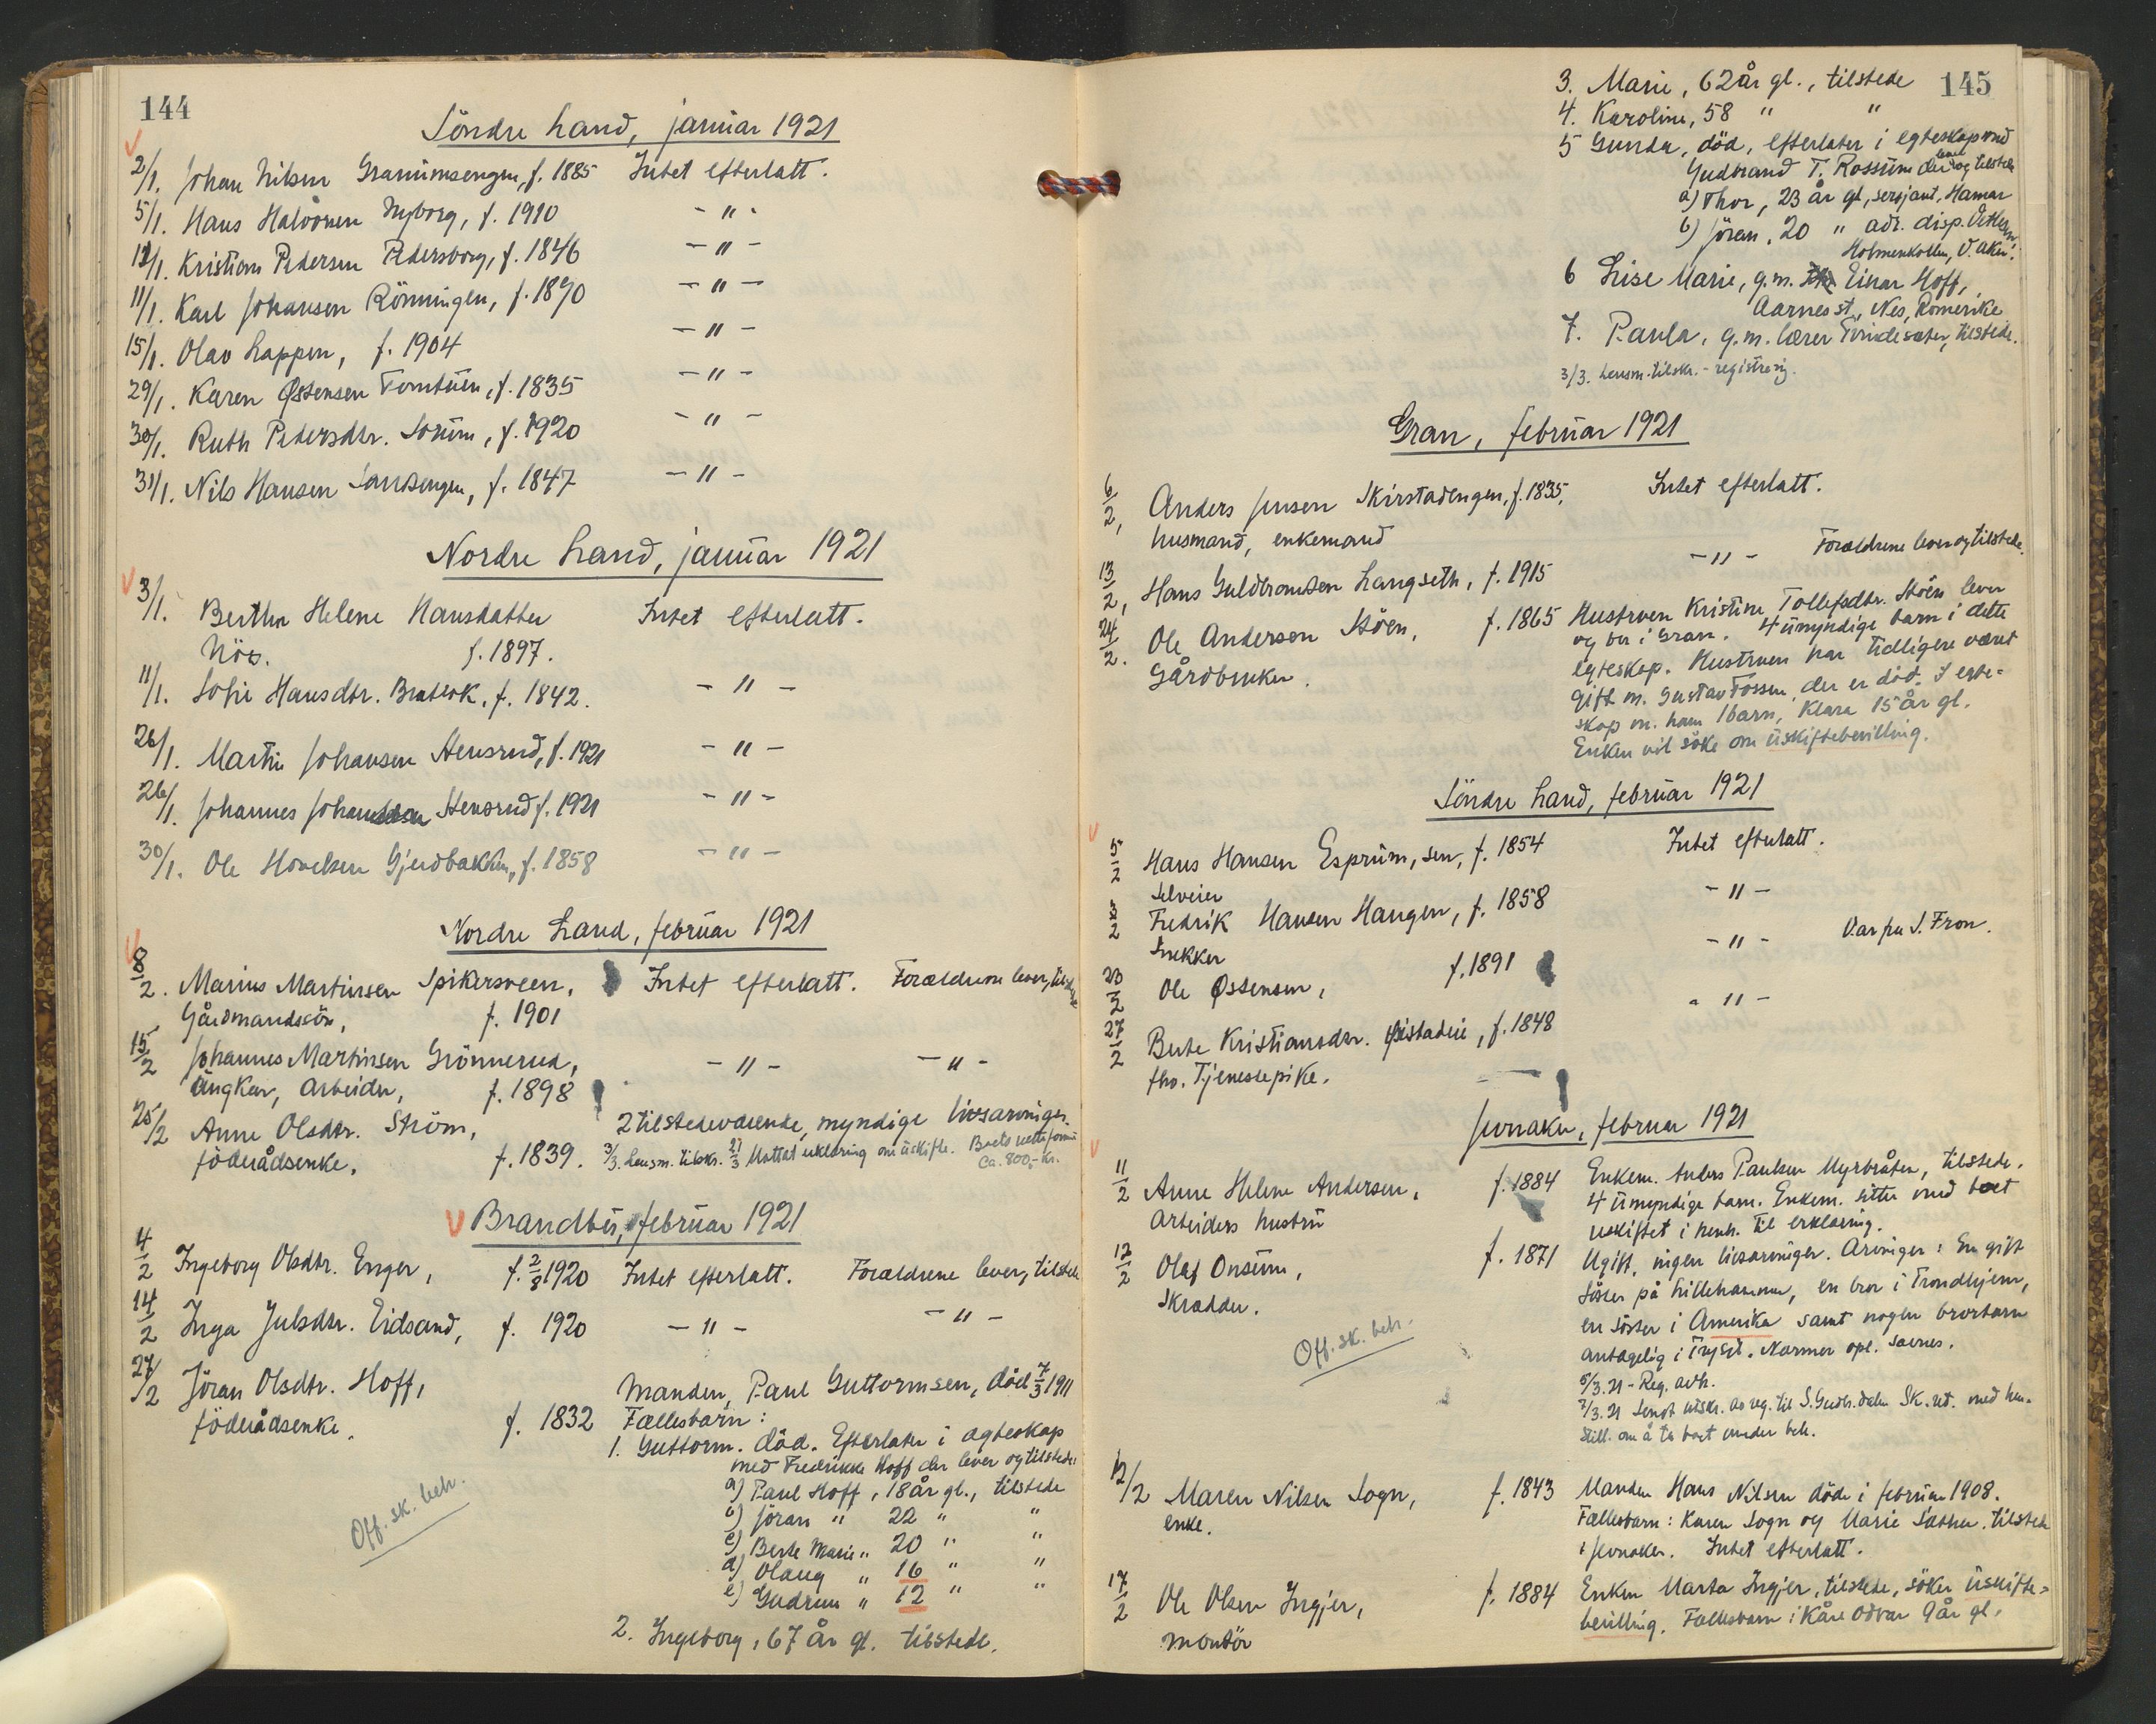 144
Söndre Land, januar 1921
2/1. Johan Nilsen Granumsengen, f. 1885 Intet efterlatt.
5/1. Hans Halvorsen Nyborg, f. 1910 - " -
12/1. Kristian Pedersen Pedersborg, f. 1846 - " -
11/1. Karl Johansen Rönningen, f. 1890 - " -
15/1. Olav Lappen, f. 1904 - " -
29/1. Karen Østensen Tomtuen, f. 1835 - " -
30/1. Ruth Pedersdtr. Sorum, f. 1920 - " -
31/1. Nils Hansen Sandengen, f. 1847 - " -
Nordre Land, januar 1921
3/1. Berthe Helene Hansdatter Intet efterlatt.
f. 1897.
11/1. Sofie Hansdtr. Braterk, f. 1842. - " -
26/1. Martin Johansen Stensrud, f. 1921 - " -
26/1. Johannes Johansen Stensrud f. 1921 - " -
30/1. Ole Hovelsen Gjerdbakken, f. 1858 - " -
Nordre Land, februar 1921
8/2. Marius Martinsen Spikersveen, Intet efterlatt. Forældrene lever, tilstede
Gårdmandssön, f. 1901
15/2 Johannes Martinsen Grönnerud, - " - - " -
Ungkar, arbeider, f. 1898
25/2 Anne Olsdtr. Ström, 2 tilstedeværende, myndige livsarvinger.
föderådsenke, f. 1839. 3/3. Lensm. tilskr. 21/3 Mottat erklæring om uskifte. Boets nettoformue
ca. 800,- kr.
Brandbu, februar 1921
4/2 Ingeborg Olsdtr. Enger, f. 2/8 1920 Intet efterlatt. Forældrene lever, tilstede
14/2 Inga Julsdtr. Eidsand, f. 1920 - " - - " -
27/2 Jöran Olsdtr. Hoff, Manden, Paul Guttormsen, död 7/3 1911
föderådsenke. f. 1832 Fællesbarn:
1. Guttorm. död. Efterlater i ægteskap
med Fredrikke Hoff der lever og tilstede:
a) Paul Hoff, 18 år gl., tilstede
b) Jöran " 22 " "
c) Berte Marie " 20 " "
d) Olaug " 16 " "
e) Gudrun " 12 " "
Off. sk. beh.
2. Ingeborg, 67 år gl. tilstede.
145
3. Marie, 62 år gl., tilstede
4. Karoline, 58 " "
5 Gunda, död, efterlater i egteskap med
Gudbrand T. Rossum der lever og tilstede
a) Thor, 23 år gl, sersjant, Hamar
b) Jöran, 20 " adr. disp.
Holmenkollen, V. Aker.
6 Lise Marie, g.m. Einar Hoff,
Aarnes st., Nes, Romerike
7. Paula, g.m. lærer Tindesæter, tilstede.
3/3. Lensm. tilskr. - registrering.
Gran, februar 1921
6/2, Anders Jensen Skirstadengen, f. 1835, Intet efterlatt.
husmand, enkemand
13/2, Hans Guldbrandsen Langseth, f. 1915 - " - Forældrene lever og tilstede.
24/2. Ole Anderson Stöen, f. 1865 Hustruen Kristine Tollefsdtr. Stöen lever
Gårdbruker. og bor i Gran. 4 umyndige barn i dette
egteskap. Hustruen har tidligere været
gift m. Gustav Fossen, der er död. I egte-
skap m. ham 1 barn, Klara 15 år gl.
Enken vil söke om uskiftebevilling.
Söndre Land, februar 1921
5/2 Hans Hansen Esprum, sen, f. 1854 Intet efterlatt.
Selveier
8/2 Fredrik Hansen Haugen, f. 1858 - " -
Snekker
23/2 Ole Østensen, f. 1891 - " - Var fra S. Fron.
27/2 Berte Kristiansdtr. Øistadeie, f. 1848 - " -
fhv. Tjenestepike.
Jevnaker, februar 1921
11/2 Anne Helene Andersen, f. 1884 Enkem. Anders Paulsen Myrbråten, tilstede.
Arbeiders hustru 4 umyndige barn. Enkem. sitter med boet
uskiftet i henh. til erklæring.
12/2 Olaf Onsum, f. 1871 Ugift, ingen livsarvinger. Arvinger: En gift
Skrædder. söster på Lillehammer, en bror i Trondhjem,
en söster i Amerika samt nogen brorbarn
antagelig i Trysil. Nærmer opl. savnes.
Off. sk. beh.
5/3. 21 - Reg. avh.
7/3. 21 Sendt utskr. av reg. til S. Gudbr. dalen Sk. ret. med hen-
still. om å ta boet under beh.
12/2 Maren Nilsen Sogn, f. 1843 Manden Hans Nilsen döde i februar 1908.
enke. Fællesbarn: Karen Sogn og Marie Sæther. tilstede
i Jevnaker. Intet efterlatt.
17/2 Ole Olsen Ingjer, f. 1884 Enken Marta Ingjer, tilstede, söker uskifte-
montör bevilling. Fællesbarn: Kåre Odvar 9 år gl.